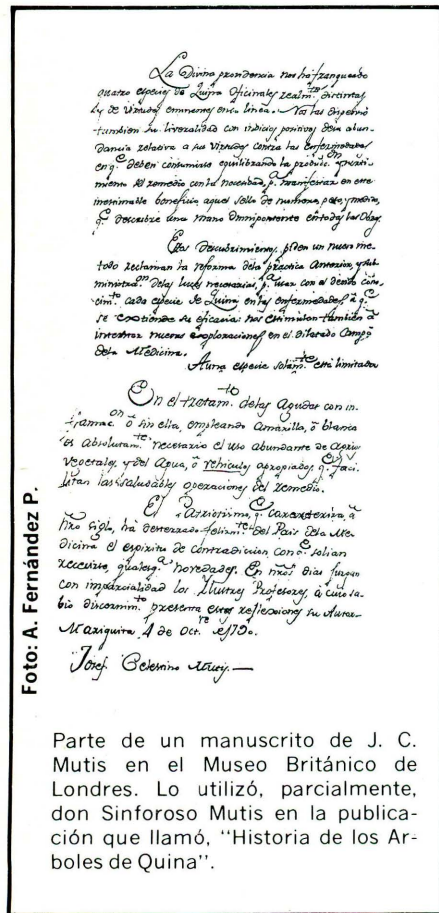 La Divina providencia nos ha franqueado
quatro especies de Quina Oficinales realm.te distintas
y de virtudes eminentes en su linea. Nos las dispensó
tambien su liveralidad con indicios positivos de la abun-
dancia relativa a sus virtudes contra las enfermedades
en q.e deben consumirse equilibrando la produc.on
miento del remedio con la necesidad, p.a manifestar en este
inestimable beneficio aquel sello de numero, peso, y medida,
q.e descubre una mano Omnipotente en todas las Obras.
Estos descubrimientos, piden un nuevo me-
todo reclaman la reforma de la practica Anterior, y sub
ministra.on de las luces necesarias, p.a usar con el devido cono-
cim.to cada especie de Quina en las enfermedades a q.e
se extiende su eficacia: nos estimulan tambien à
intentar nuevas exploraciones en el dilatado Campo
de la Medicina.
A una especie solam.te està limitada
En el tratam.to de las Agudas con in-
flamac.on ò sin ella, empleando Amarilla, ò blanca
es absolutam.te necesario el uso abundante de
vegetales, y del Agua, ò vehiculos apropiados q.e faci-
litan las saludables operaciones del remedio.
El Patriotismo, q.e caracteriza à
nro siglo, ha desterrado felizm.te del Pais de la Me-
dicina el espiritu de contradicion con q.e solian
recevirse, qualesq.a novedades. En nros dias juzgan
con imparcialidad los Ilustres Profesores, à cuio sa-
bio discernim.to presenta estas reflexiones su Autor.
Mariquita, 4 de Oct.re 1790.
Josef Celestino Mutis.—
Foto: A. Fernández P.
Parte de un manuscrito de J. C.
Mutis en el Museo Británico de
Londres. Lo utilizó, parcialmente,
don Sinforoso Mutis en la publica-
ción que llamó, "Historia de los Ar-
boles de Quina".